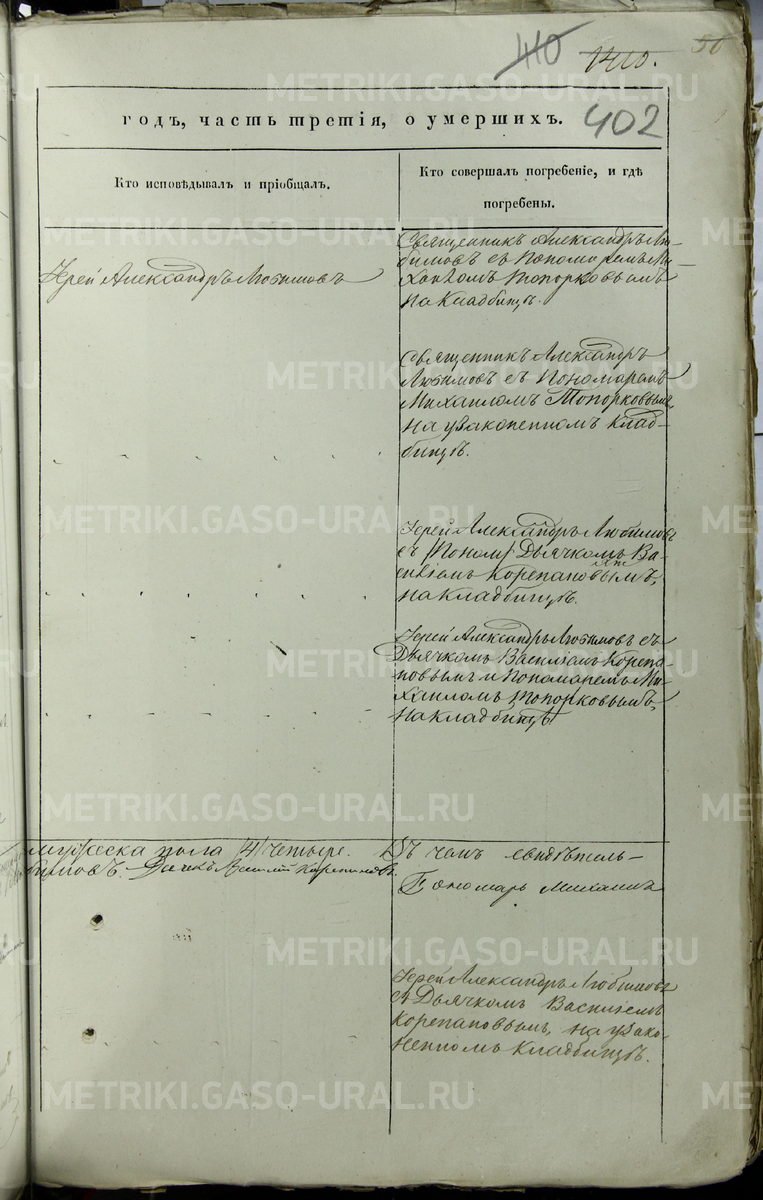 410
1410.
50
402
годъ, часть третія, о умершихъ.
Кто исповѣдывалъ и пріобщалъ.
Кто совершалъ погребеніе, и гдѣ
погребены.
Іерей Александръ Любимовъ
Священникъ Александръ Лю-
бимовъ съ Пономаремъ Ми-
хаиломъ Топорковымъ
на кладбищѣ.
Священникъ Александръ
Любимовъ съ Пономаремъ
Михаиломъ Топорковымъ,
на узаконенномъ клад-
бищѣ.
Іерей Александръ Любимовъ
съ /Поном/ Дьячкомъ Ва-
силіемъ Корепановымъ,
на кладбищѣ.
Іерей Александръ Любимовъ съ
Дьячкомъ Василіемъ Корепа-
новымъ и Пономаремъ Ми-
хаиломъ Топорковымъ,
на кладбищѣ
мужеска пола /4/ четыре.
Въ чемъ свидѣтель-
бимовъ. Дьячекъ Василій Корепановъ.
Пономарь Михаилъ
Іерей Александръ Любимовъ
съ Дьячкомъ Василіемъ
Корепановымъ, на узако-
ненномъ кладбищѣ.
METRIKI.GASO-URAL.RU